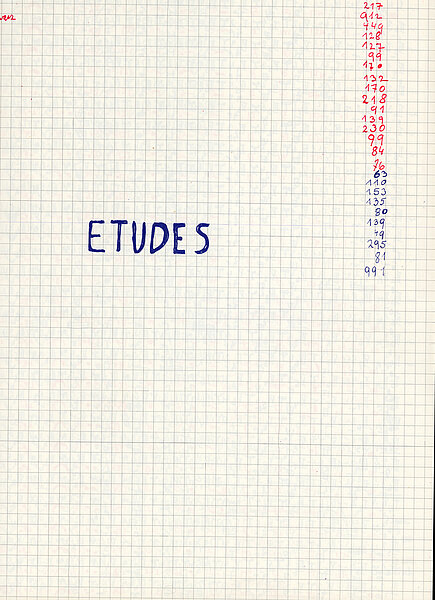 217
912
449
128
127
99
170
132
170
218
91
139
230
99
84
76
63
110
153
135
80
139
49
295
81
991
ETUDES